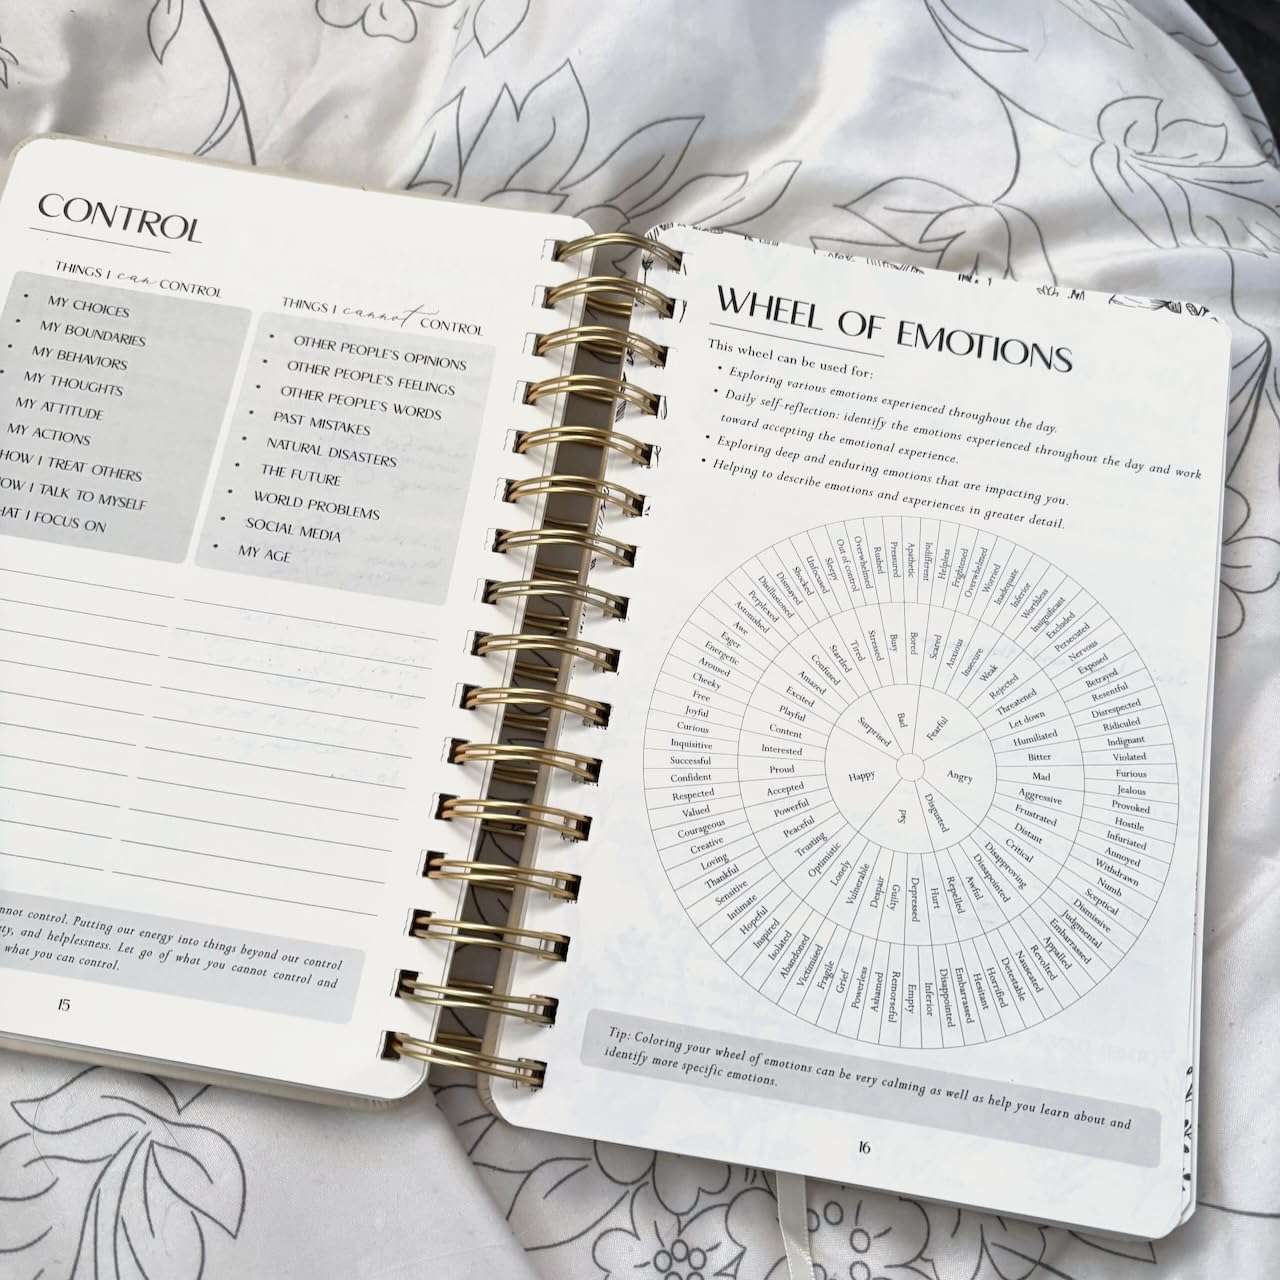 CONTROL
THINGS I can CONTROL
MY CHOICES
MY BOUNDARIES
MY BEHAVIORS
MY THOUGHTS
MY ATTITUDE
MY ACTIONS
HOW I TREAT OTHERS
OW I TALK TO MYSELF
HAT I FOCUS ON
THINGS I cannot CONTROL
• OTHER PEOPLE'S OPINIONS
• OTHER PEOPLE'S FEELINGS
• OTHER PEOPLE'S WORDS
• PAST MISTAKES
• NATURAL DISASTERS
• THE FUTURE
• WORLD PROBLEMS
• SOCIAL MEDIA
• MY AGE
nnot control. Putting our energy into things beyond our control
ty, and helplessness. Let go of what you cannot control and
what you can control.
15
WHEEL OF EMOTIONS
This wheel can be used for:
• Exploring various emotions experienced throughout the day.
• Daily self-reflection: identify the emotions experienced throughout the day and work
toward accepting the emotional experience.
• Exploring deep and enduring emotions that are impacting you.
• Helping to describe emotions and experiences in greater detail.
Bad
Fearful
Angry
Disgusted
Sad
Happy
Surprised
Bored
Scared
Anxious
Insecure
Weak
Rejected
Threatened
Let down
Humiliated
Bitter
Mad
Aggressive
Frustrated
Distant
Critical
Disapproving
Disappointed
Awful
Repelled
Hurt
Depressed
Guilty
Despair
Vulnerable
Lonely
Optimistic
Trusting
Peaceful
Powerful
Accepted
Proud
Interested
Content
Playful
Excited
Amazed
Confused
Startled
Tired
Stressed
Busy
Apathetic
Indifferent
Helpless
Frightened
Overwhelmed
Worried
Inadequate
Inferior
Worthless
Insignificant
Excluded
Persecuted
Nervous
Exposed
Betrayed
Resentful
Disrespected
Ridiculed
Indignant
Violated
Furious
Jealous
Provoked
Hostile
Infuriated
Annoyed
Withdrawn
Numb
Sceptical
Dismissive
Judgmental
Embarrassed
Appalled
Revolted
Nauseated
Detestable
Horrified
Hesitant
Embarrassed
Disappointed
Inferior
Empty
Remorseful
Ashamed
Powerless
Grief
Fragile
Victimised
Abandoned
Isolated
Inspired
Hopeful
Intimate
Sensitive
Thankful
Loving
Creative
Courageous
Valued
Respected
Confident
Successful
Inquisitive
Curious
Joyful
Free
Cheeky
Aroused
Energetic
Eager
Awe
Astonished
Perplexed
Disillusioned
Dismayed
Shocked
Unfocused
Sleepy
Out of control
Overwhelmed
Rushed
Pressured
Tip: Coloring your wheel of emotions can be very calming as well as help you learn about and
identify more specific emotions.
16